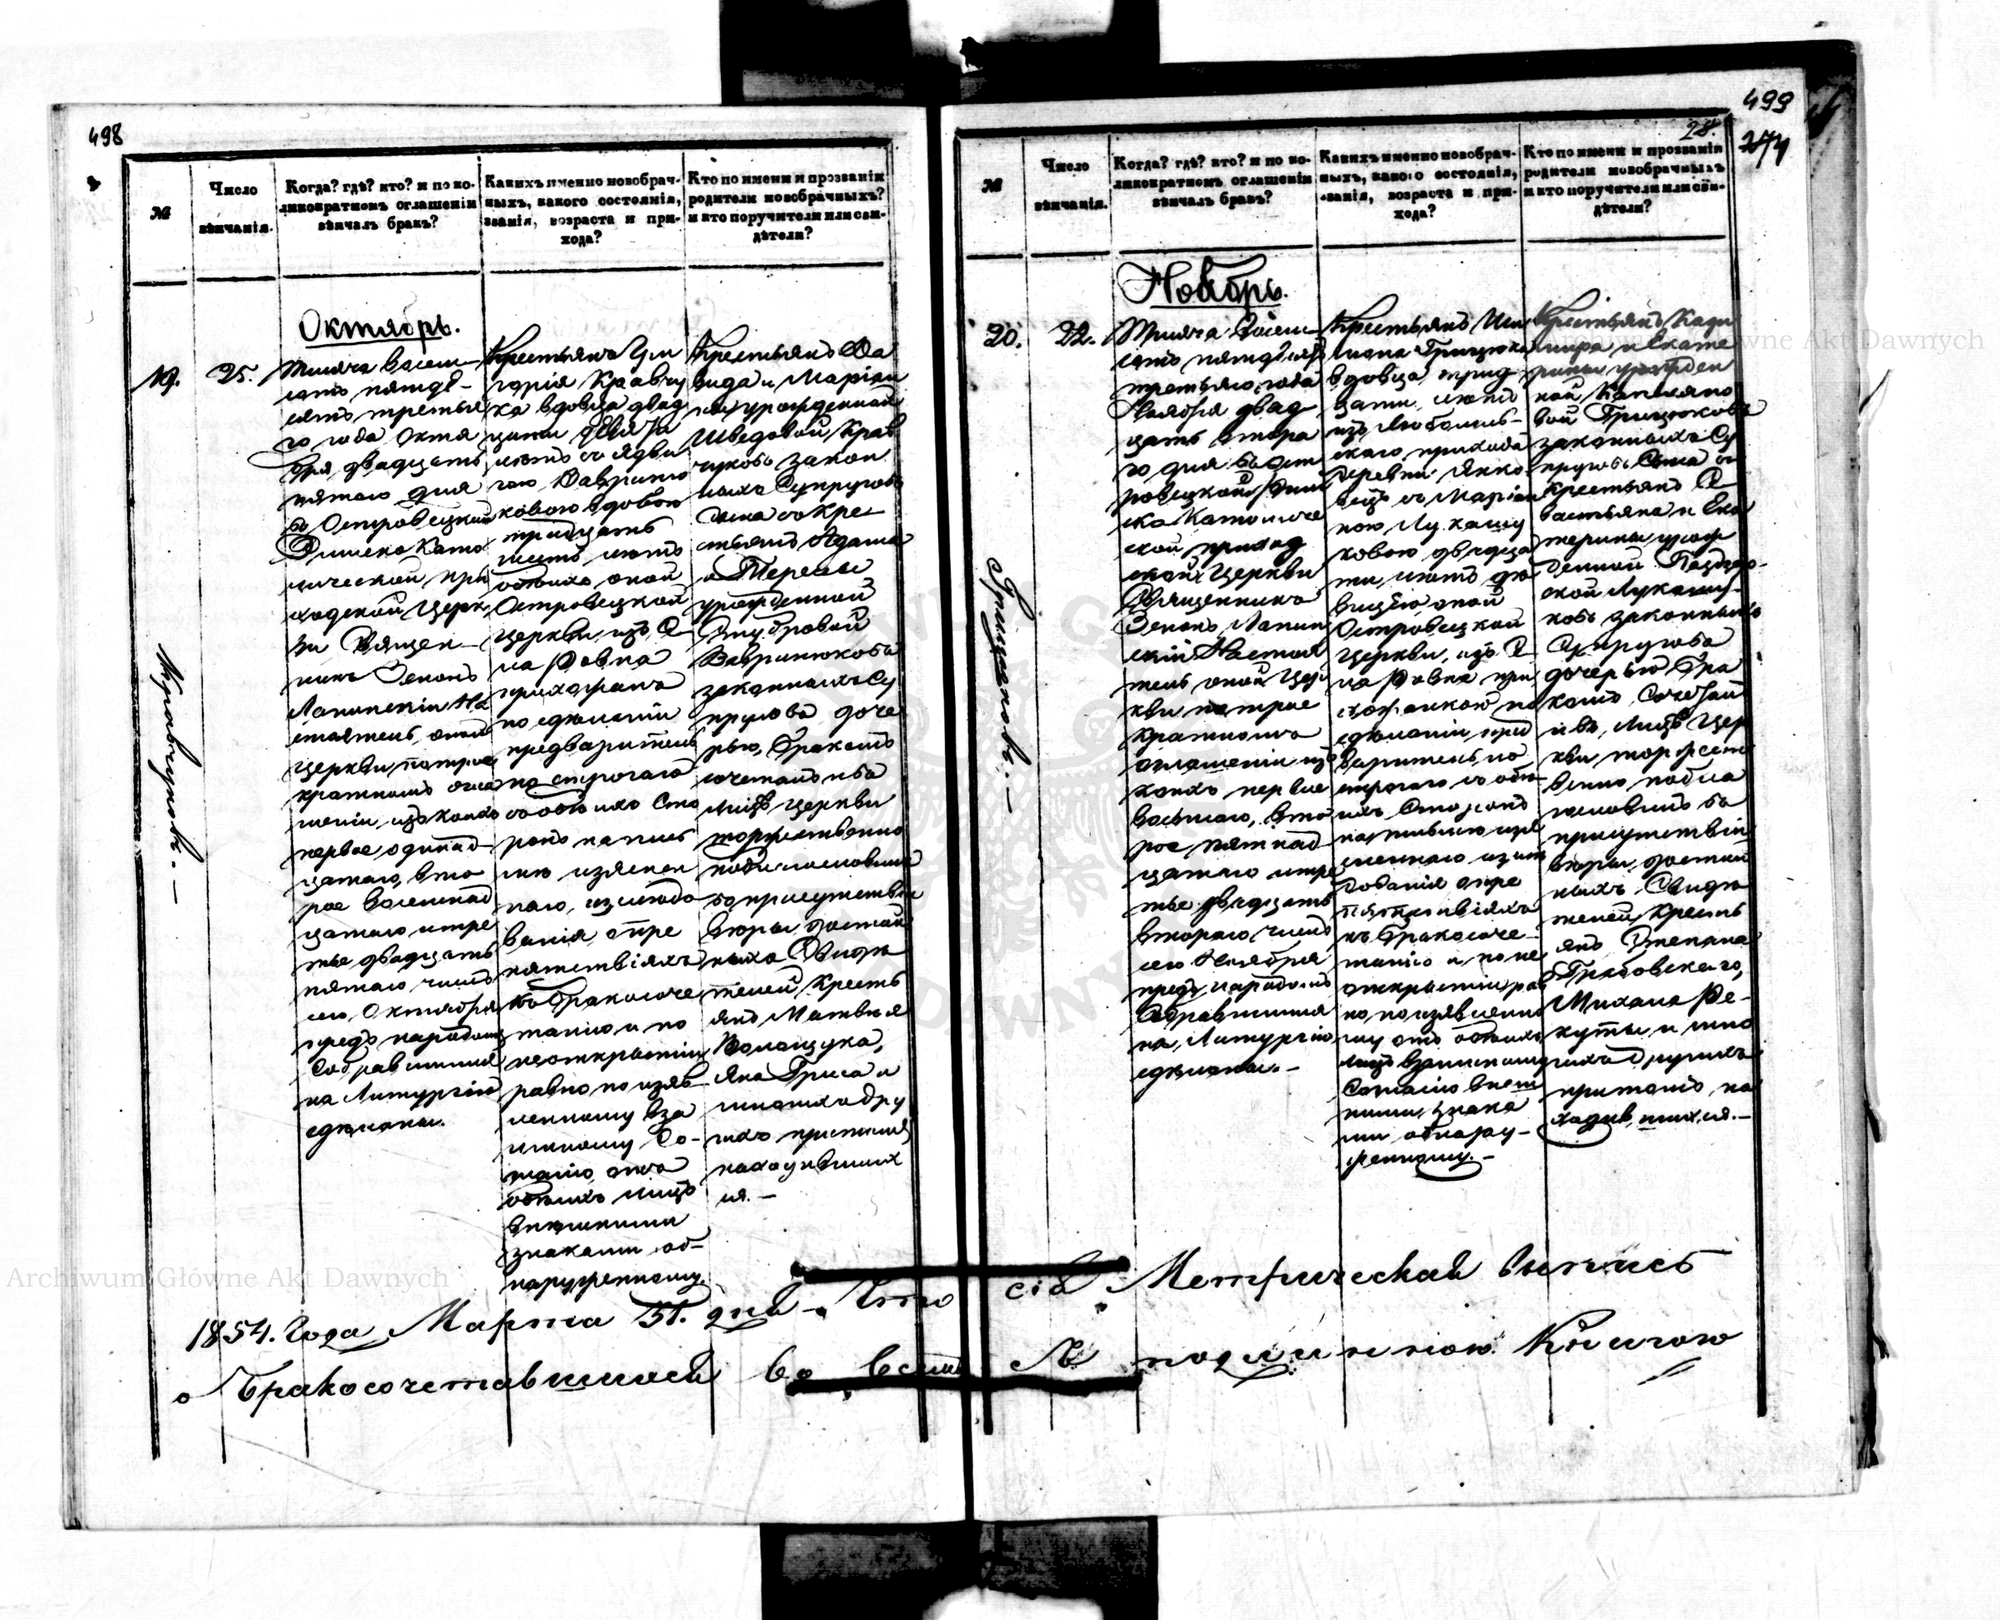 498
№
Число
вѣнчанія.
Когда? гдѣ? кто? и по ко-
ликократномъ оглашеніи
вѣнчалъ бракъ?
Какихъ именно новобрач-
ныхъ, какого состоянія,
званія, возраста и при-
хода?
Кто по имени и прозванію
родители новобрачныхъ?
и кто поручители или сви-
дѣтели?
Октябрь.
19.
25.
Кравчуковъ. —
Тысяча восем-
сотъ пятьде-
сятъ третья
го года Октя
бря двадцать
пятаго дня
въ Островецкой
Римско Като
лической при
ходской Церк
ви Священ-
никъ Зенонъ
Лапинскій На
стоятель оной
Церкви, по трое
кратномъ огла
шеніи, изъ коихъ
первое, одинад-
цатаго, вто
рое восемнад
цатаго и тре
тье двадцать
пятаго числъ
сего Октября
предъ народомъ
собравшимся
на Литургію
сдѣланы.
Крестьянъ Гри
горія Кравчу
ка вдовца двад
цати девяти
лѣтъ съ Ядви
гою Ваврыню
ковою вдовою
тридцать
лѣтъ
обоихъ оной
Островецкой
Церкви, изъ С
ла Ровна
прихожанъ
по сдѣланіи
предваритель
но строгаго
съ обоихъ Сто
ронъ на пись
мѣ изъяснен
наго, изслѣдо
ванія, о пре
пятствіяхъ
къ бракосоче
танію и по
неоткрытіи
равно по изъяв-
ленному вза
имному Со-
гласію, отъ
обоихъ лицъ
внѣшними
знаками об-
наруженному.
Крестьянъ Да
вида и Маріан
ны урожденной
Шведовой, Крав
чуковъ закон
ныхъ Супруговъ
сына съ Кре-
стьянъ Адама
и Тересы
урожденной
Ваврынюковъ
законныхъ Су
пруговъ доче
рью, бракомъ
сочеталъ и въ
лицѣ Церкви
торжественно
поблагословилъ
въ присутствіи
вѣры достой
ныхъ Свидѣ
телей Крестъ
янъ Матвѣя
Волощука,
Яна Гриса и
многихъ дру
гихъ притомъ
находившихъ
ся. —
499
28.
274
№
Число
вѣнчанія.
Когда? гдѣ? кто? и по ко-
ликократномъ оглашеніи
вѣнчалъ бракъ?
Какихъ именно новобрач-
ныхъ, какого состоянія,
званія, возраста и при-
хода?
Кто по имени и прозванію
родители новобрачныхъ
и кто поручители или сви-
дѣтели?
Ноябрь.
20.
22.
Грицюковъ. —
Тысяча Восем-
сотъ пятдесятъ
третьяго года
Ноября двад
цать втора
го дня въ Ост
ровецкой Рим
ско Католиче
ской приход
ской Церкви
Священникъ
Зенонъ Лапин
скій Настоя
тель оной Цер
кви по трое
кратномъ
оглашеніи изъ
коихъ первое
восьмаго, вто
рое пятнад
цатаго и тре
тье двадцать
втораго числъ
сего Ноября
предъ народомъ
собравшимся
на Литургію
сдѣланы. —
Крестьянъ
Грицюка
вдовца, трид
цати лѣтъ
изъ Любашев-
скаго прихода
деревни
съ Маріан
ною Лукашу
ковою двадца
ти лѣтъ дѣ
вицею оной
Островецкой
Церкви, изъ С
ла Ровна при
хожанкою по
сдѣланіи пред
варительно
строгаго съ обо-
ихъ Сторонъ
на письмѣ изъя
сненнаго изслѣ
дованія о пре
пятствіяхъ
къ бракосоче-
танію и по не
открытіи рав
но по изъявленно
му отъ обоихъ
лицъ взаимному
Согласію внѣш
ними, знака
ми обнару-
женному. —
Крестьянъ Кази
мира и Екате
рины урожден
ной
вой Грицюковъ
законныхъ Су
пруговъ Сына съ
Крестьянъ С
вастьяна и Ека
терины урож
денной
ской Лукашу-
ковъ законныхъ
Супруговъ
дочерью бра
комъ, Сочеталъ
и въ лицѣ Цер
кви, торжест
венно побла
гословилъ въ
присутствіи
вѣры достой
ныхъ Свидѣ
телей Кресть
янъ Степана
Грабовскаго,
Михаила Ре-
куты и мно
гихъ другихъ
притомъ на
ходившихся. —
1854. Года Марта 31. дня. Что сія Метрическая Выпись
о Бракосочетавшихся во всемъ съ подлинною Книгою
Archiwum Główne Akt Dawnych